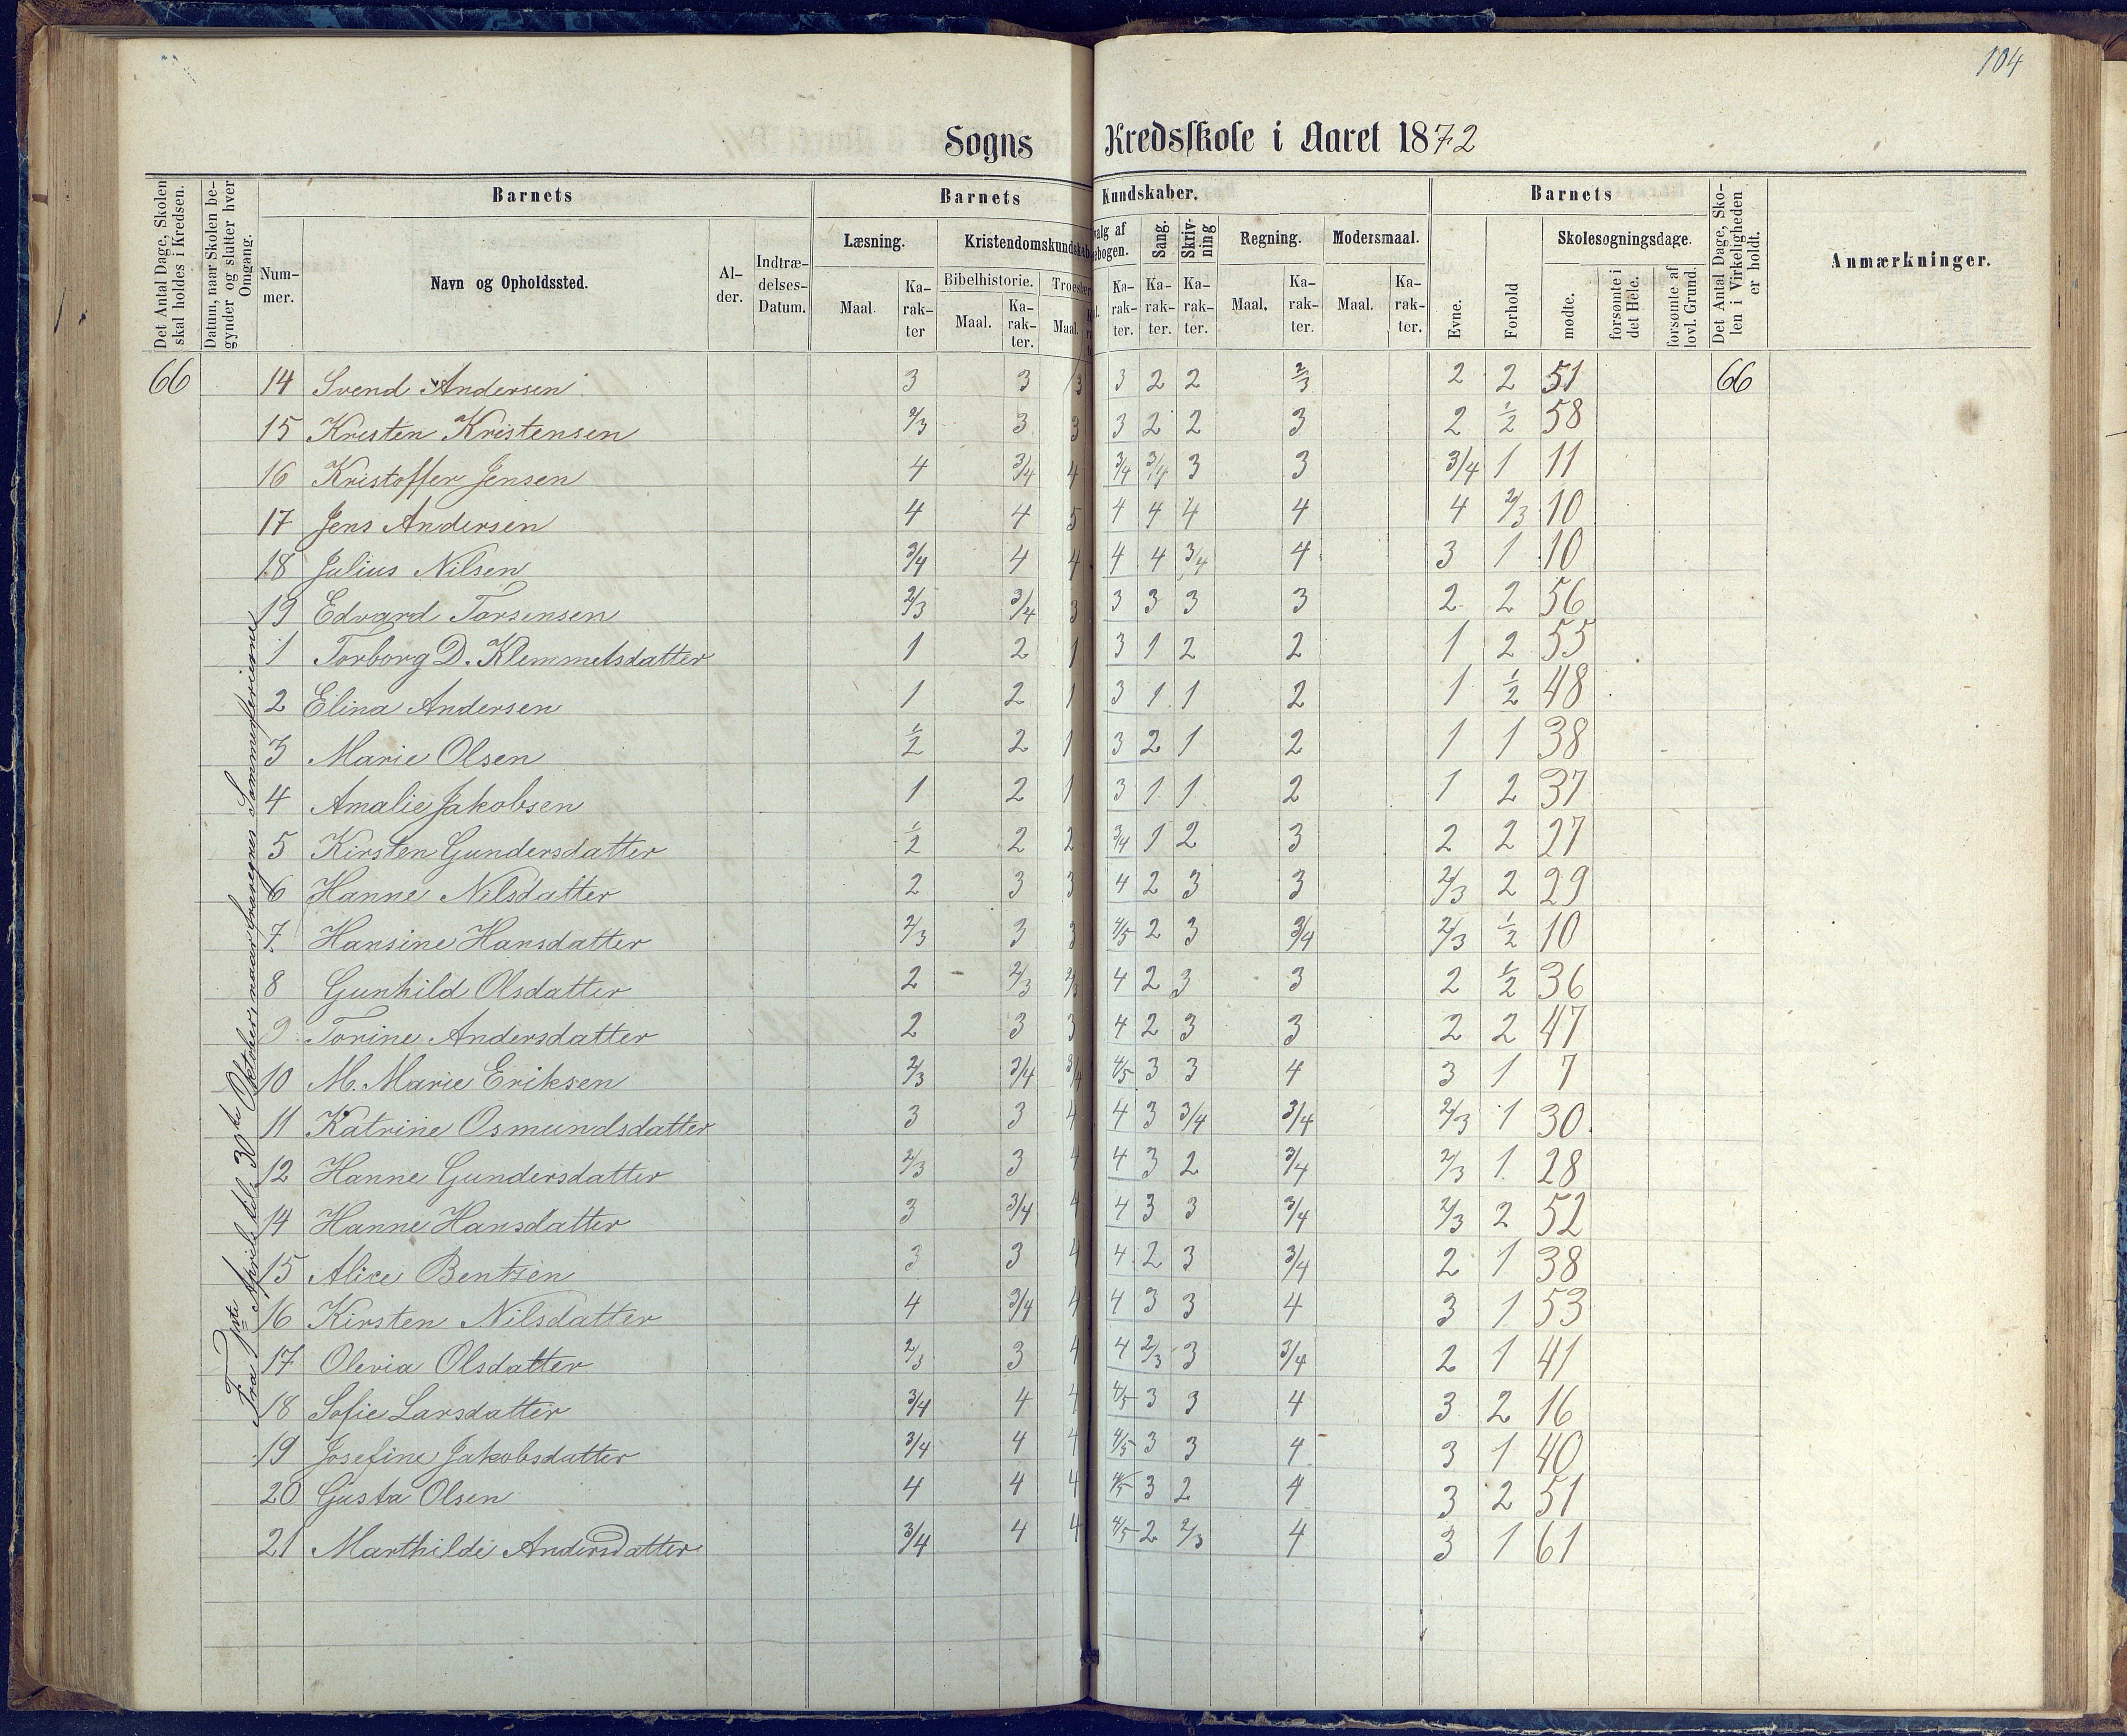 104
Sogns Kredsskole i Aaret 1872
Det Antal Dage, Skolen skal holdes i Kredsen.
Datum, naar Skolen be-gynder og slutter hver Omgang.
Barnets
Num-mer.
Navn og Opholdssted.
Al-der.
Indtræ-delses-Datum.
Barnets Kundskaber.
Læsning.
Maal. Ka-rak-ter
Kristendomskundskab
Bibelhistorie.
Maal. Ka-rak-ter.
Troeslære
Maal.
valg af
ebogen.
Ka-rak-ter.
Sang.
Ka-rak-ter.
Skriv-ning
Ka-rak-ter.
Regning.
Maal. Ka-rak-ter.
Modersmaal.
Maal. Ka-rak-ter.
Barnets
Evne.
Forhold
Skolesøgningsdage.
mødte.
forsømte i det Hele.
forsømte af lovl. Grund.
Det Antal Dage, Sko-len i Virkeligheden er holdt.
Anmærkninger.
Fra 1ste April til 30te Oktober, naar fraregnes Sommerferierne
66 14 Svend Andersen 3 3 3 3 2 2 2/3 2 2 51 66
15 Kristen Kristensen 2/3 3 3 3 2 2 3 2 1/2 58
16 Kristoffer Jensen 4 3/4 4 3/4 3/4 3 3 3/4 1 11
17 Jens Andersen 4 4 5 4 4 4 4 4 2/3 10
18 Julius Nilsen 3/4 4 4 4 4 3/4 4 3 1 10
19 Edvard Torsensen 2/3 3/4 3 3 3 3 3 2 2 56
1 Torborg D. Klemmetsdatter 1 2 1 3 1 2 2 1 2 55
2 Elina Andersen 1 2 1 3 1 1 2 1 1/2 48
3 Marie Olsen 1/2 2 1 3 2 1 2 1 1 38
4 Amalie Jakobsen 1 2 1 3 1 1 2 1 2 37
5 Kirsten Gundersdatter 1/2 2 2 3/4 1 2 3 2 2 27
6 Hanne Nilsdatter 2 3 3 4 2 3 3 2/3 2 29
7 Hansine Hansdatter 2/3 3 3 4/5 2 3 3/4 2/3 1/2 10
8 Gunhild Olsdatter 2 2/3 2/3 4 2 3 3 2 1/2 36
9 Torine Andersdatter 2 3 3 4 2 3 3 2 2 47
10 M. Marie Eriksen 2/3 3/4 3/4 4/5 3 3 4 3 1 7
11 Katrine Osmundsdatter 3 3 4 4 3 3/4 3/4 2/3 1 30
12 Hanne Gundersdatter 2/3 3 4 4 3 2 3/4 2/3 1 28
14 Hanne Hansdatter 3 3/4 4 4 3 3 3/4 2/3 2 52
15 Alice Bentsen 3 3 4 4 2 3 3/4 2 1 38
16 Kirsten Nilsdatter 4 3/4 4 4 3 3 4 3 1 53
17 Olevia Olsdatter 2/3 3 4 4 2/3 3 3/4 2 1 41
18 Sofie Larsdatter 3/4 4 4 4/5 3 3 4 3 2 16
19 Josefine Jakobsdatter 3/4 4 4 4/5 3 3 4 3 1 40
20 Gusta Olsen 4 4 4 4/5 3 2 4 3 2 51
21 Marthilde Andersdatter 3/4 4 4 4/5 2 2/3 4 3 1 61